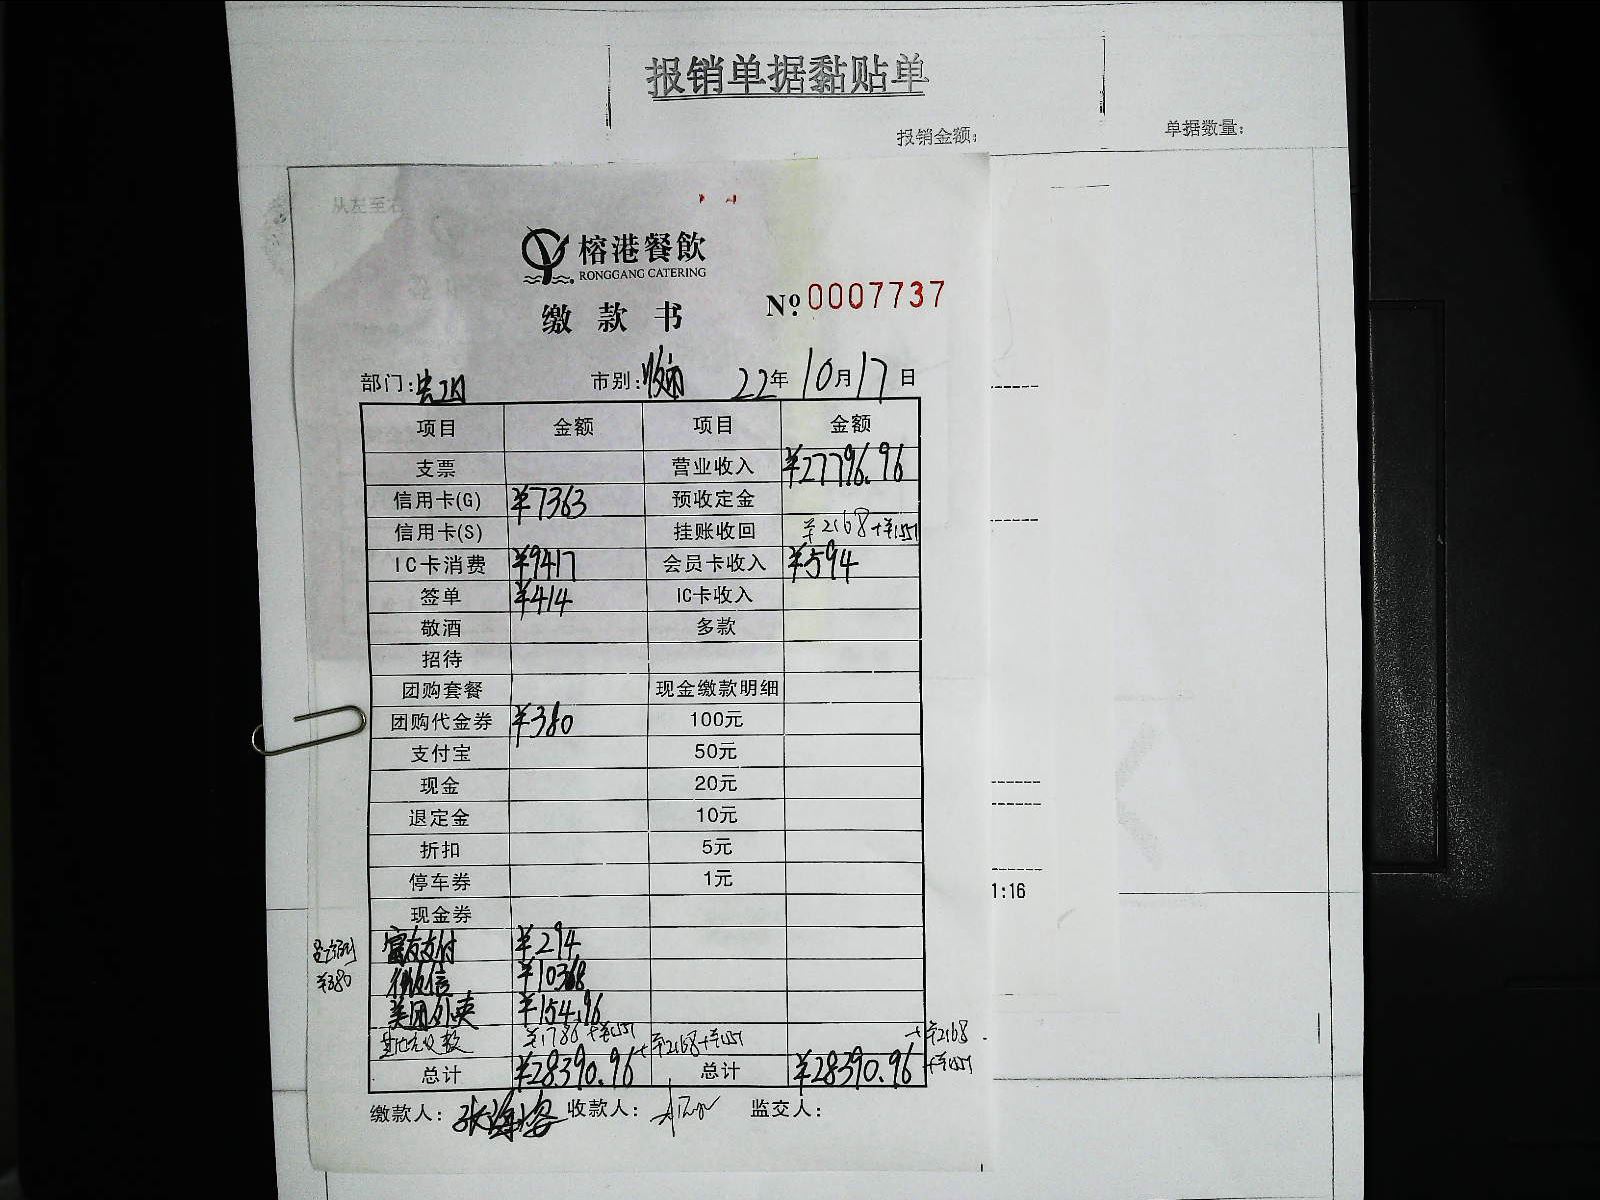 报销单据黏贴单
报销金额:
单据数量:
从左至右
榕港餐飲
RONGGANG CATERING
缴款书
№ 0007737
部门: 市别: 22年 10月 17日
项目 金额 项目 金额
支票 营业收入 ¥27796.96
信用卡(G) ¥7363 预收定金
信用卡(S) 挂账收回 ¥2168+¥1551
IC卡消费 ¥9417 会员卡收入 ¥594
签单 ¥414 IC卡收入
敬酒 多款
招待
团购套餐 现金缴款明细
团购代金券 ¥380 100元
支付宝 50元
现金 20元
退定金 10元
折扣 5元
停车券 1元
1:16
现金券
富友支付 ¥294
¥380
微信 ¥10368
美团外卖 ¥154.96
¥1786+¥1551 +¥2168+¥1551 +¥2168
总计 ¥28390.96 总计 ¥28390.96 +¥1551
缴款人: 张海容 收款人: 监交人: